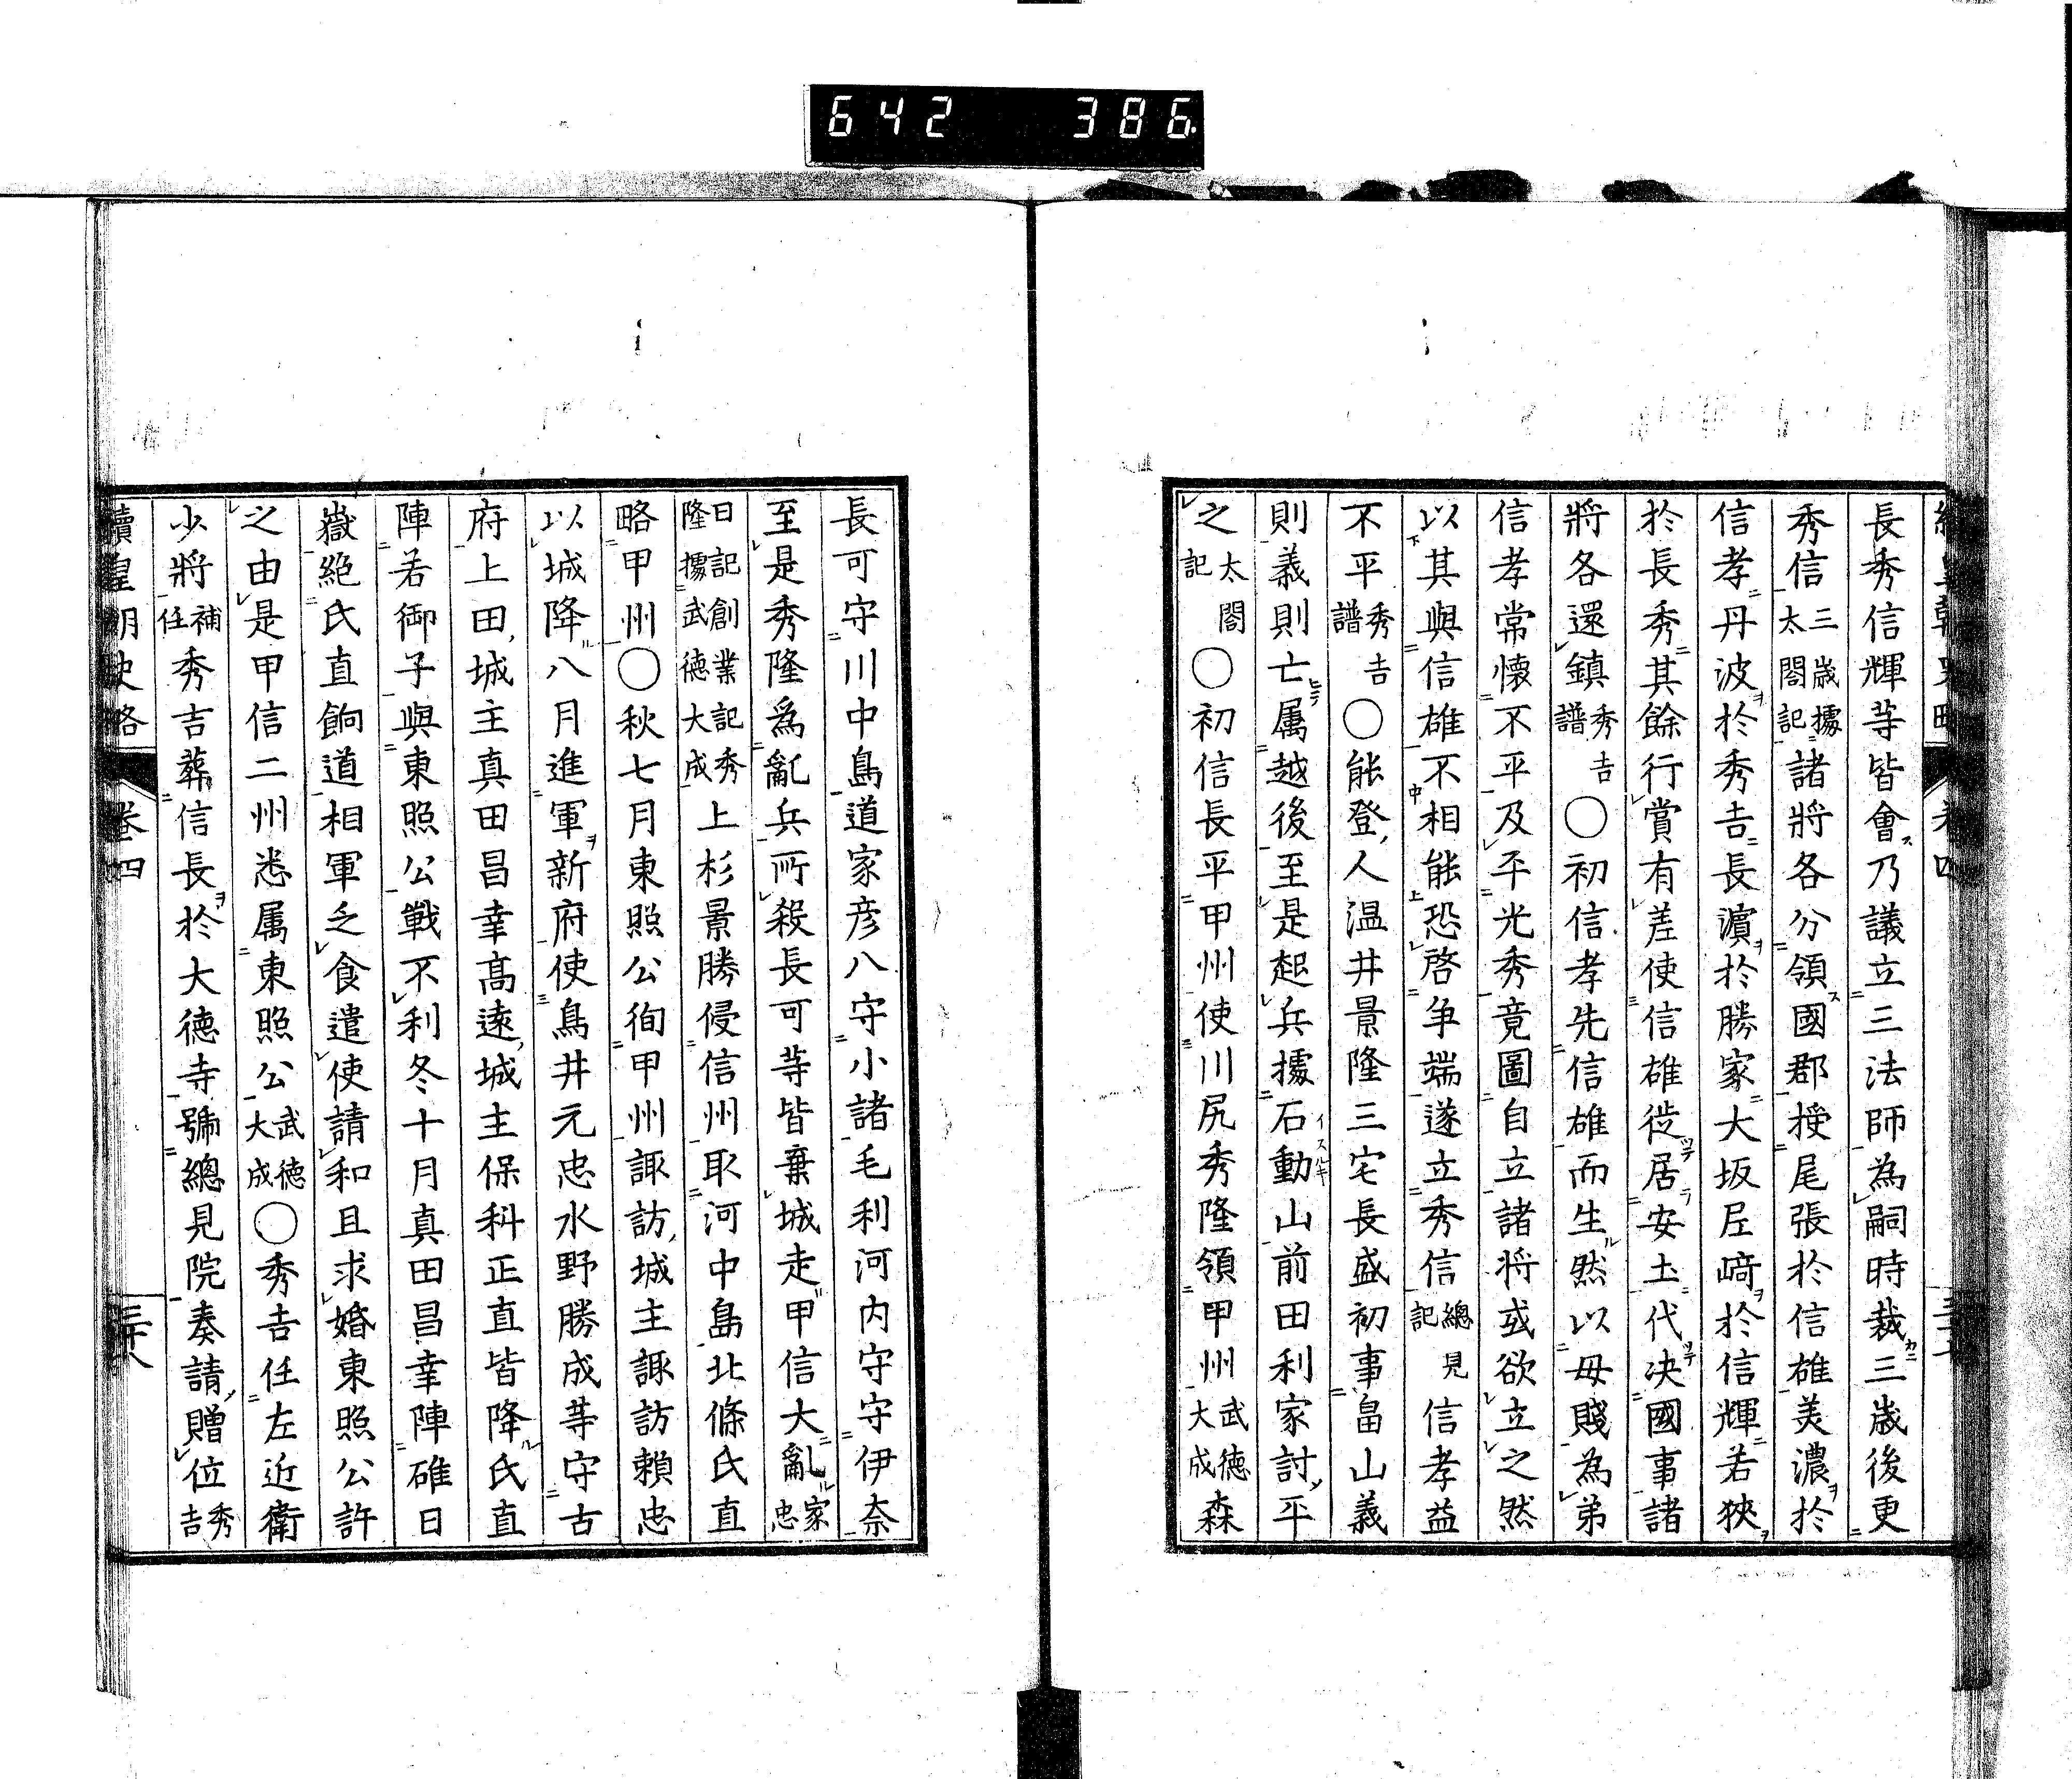 642 386
長秀信輝等皆會乃議立三法師為嗣時裁三歳後更
秀信三歳據太閤記諸將各分領國郡授尾張於信雄美濃於
信孝丹波於秀吉長濵於勝家大坂尼﨑於信輝若狹
於長秀其餘行賞有差使信雄徙居安土代决國事諸
將各還鎮秀吉譜〇初信孝先信雄而生然以母賤為弟
信孝常懷不平及平光秀竟圖自立諸将或欲立之然
以其與信雄不相能恐啓争端遂立秀信總見記信孝益
不平秀吉譜〇能登人温井景隆三宅長盛初事畠山義
則義則亡属越後至是起兵據石動山前田利家討平
之太閤記〇初信長平甲州使川尻秀隆領甲州武德大成森
長可守川中島道家彦八守小諸毛利河内守守伊奈
至是秀隆爲亂兵所殺長可等皆棄城走甲信大亂家忠
日記創業記秀隆據武德大成上杉景勝侵信州取河中島北條氏直
略甲州〇秋七月東照公徇甲州諏訪城主諏訪賴忠
以城降八月進軍新府使鳥井元忠水野勝成等守古
府上田城主真田昌幸髙遠城主保科正直皆降氏直
陣若御子與東照公戰不利冬十月真田昌幸陣碓日
嶽絶氏直餉道相軍乏食遣使請和且求婚東照公許
之由是甲信二州悉属東照公武德大成〇秀吉任左近衛
少將補任秀吉葬信長於大德寺號總見院奏請贈位秀吉
續皇朝史略 卷四 三十八